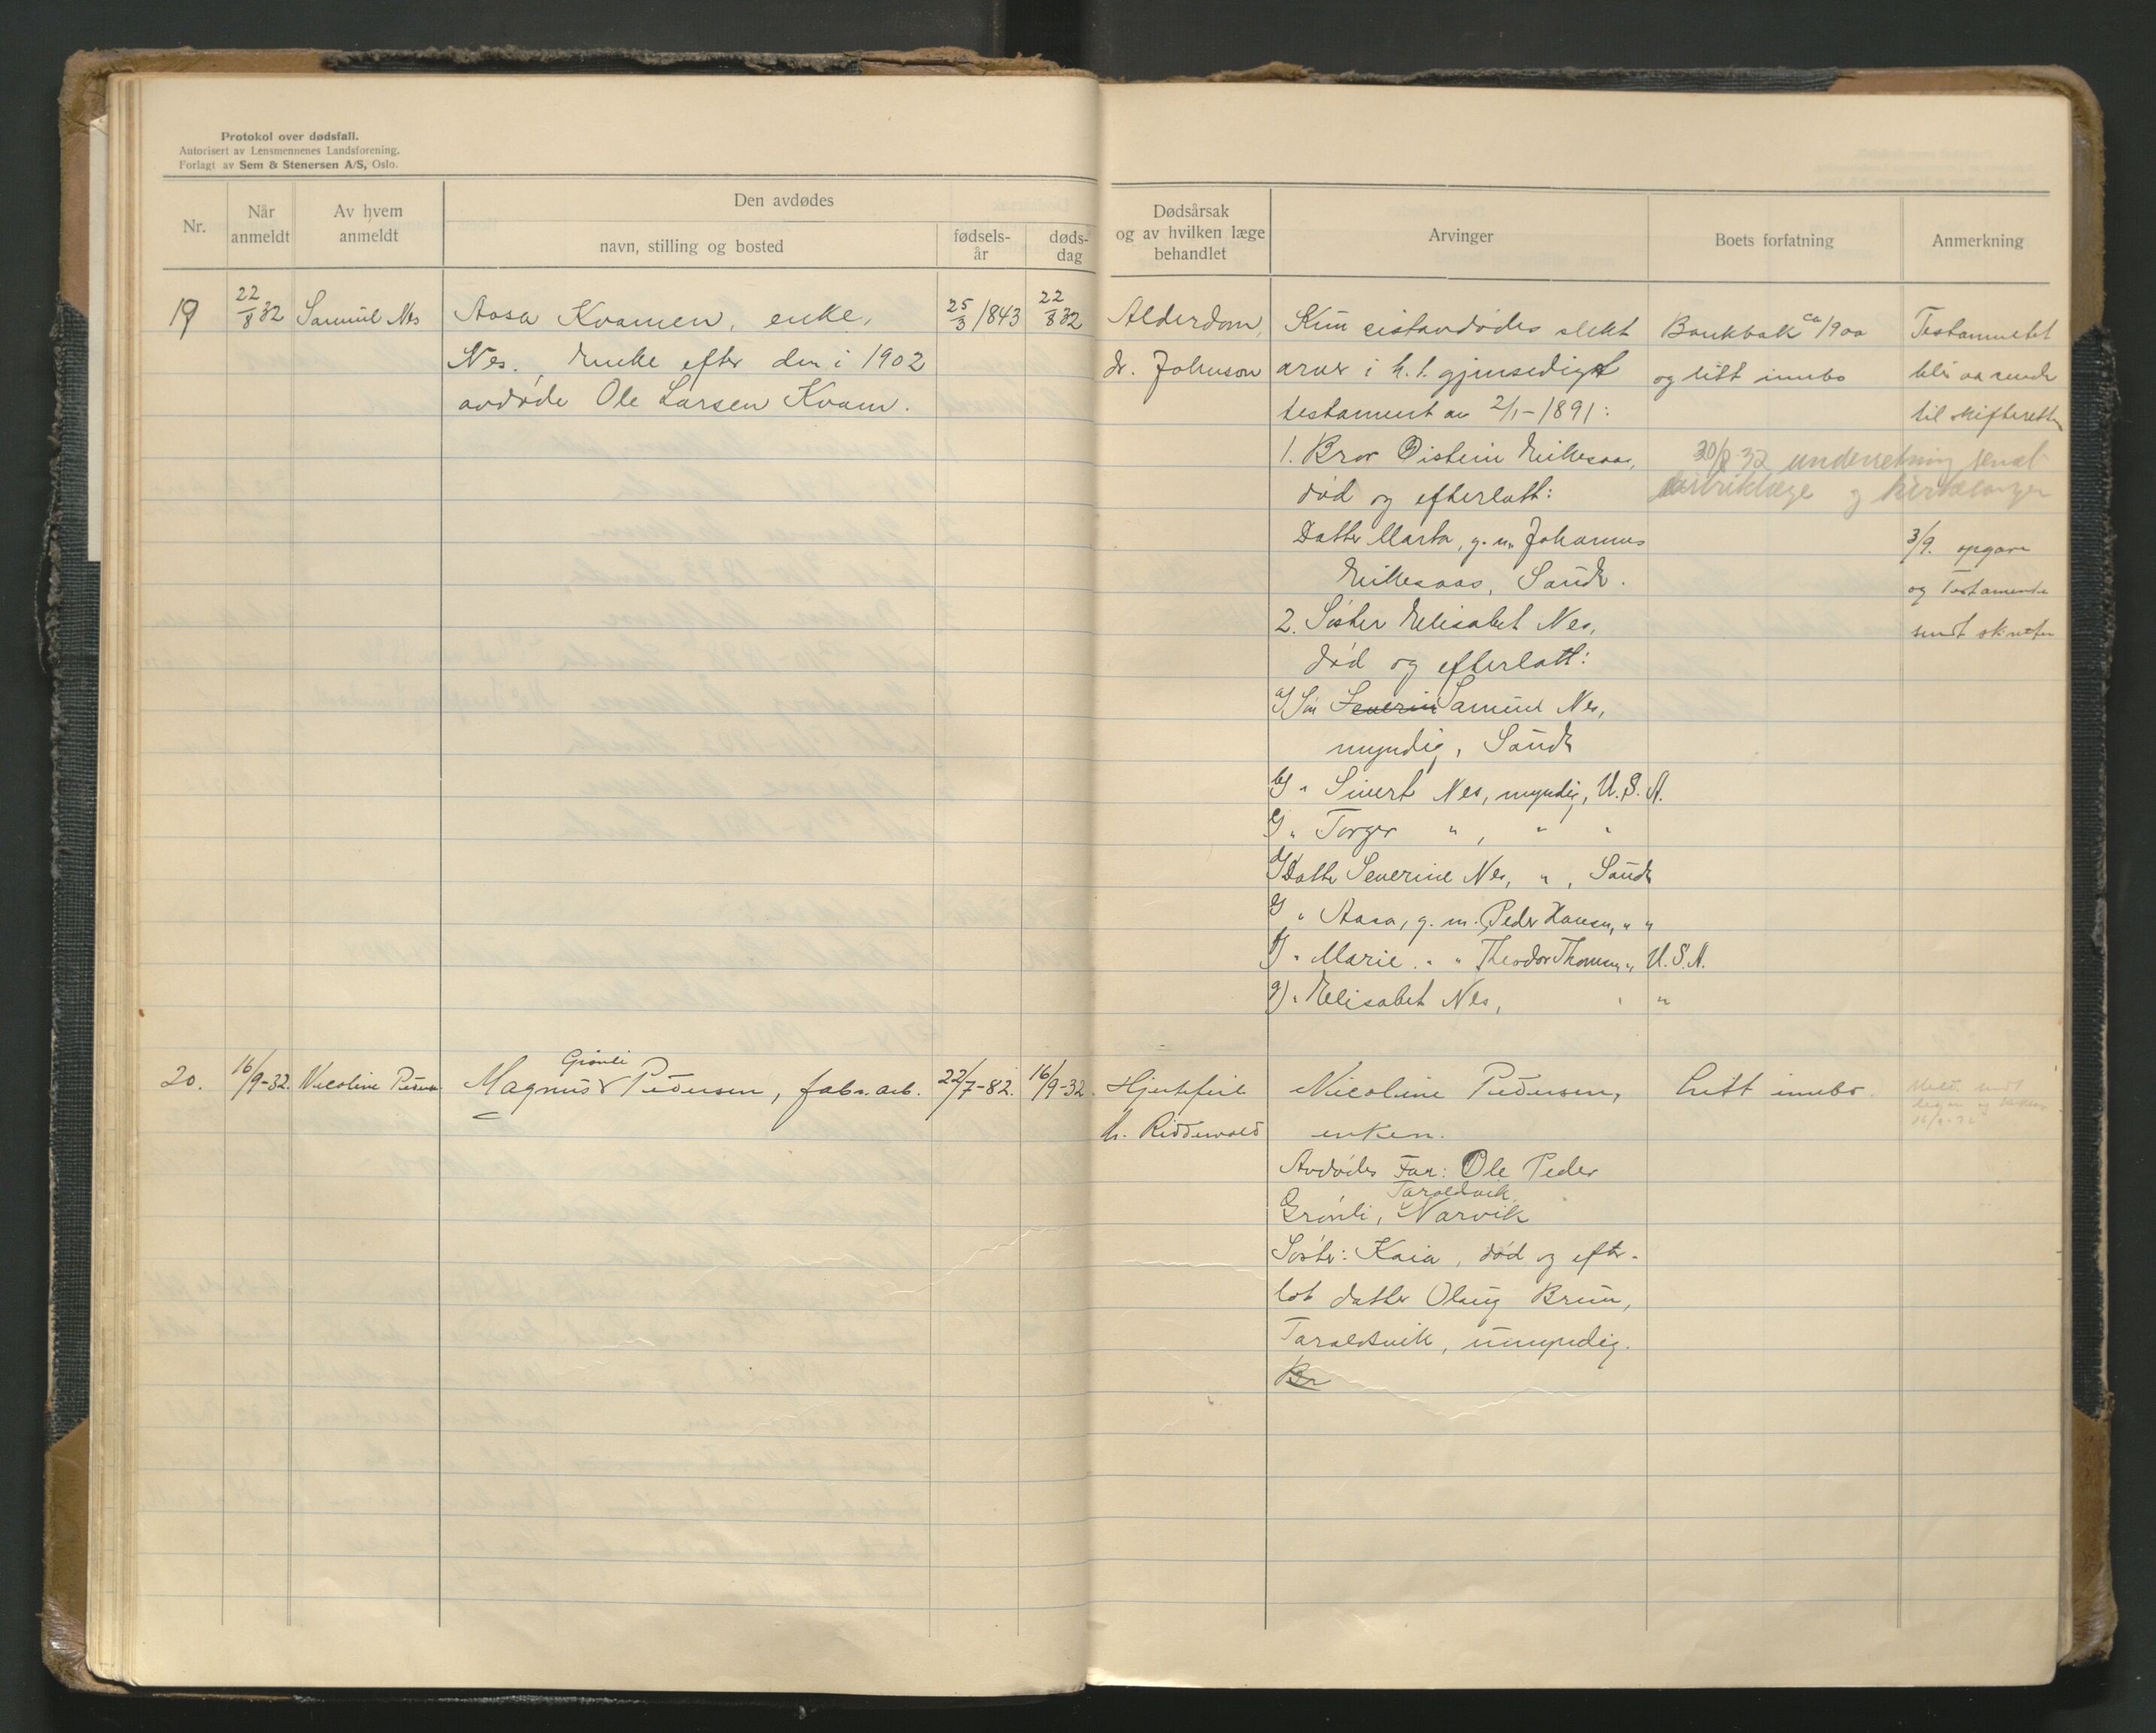 Protokol over dødsfall.
Autorisert av Lensmennenes Landsforening.
Forlagt av Sem & Stenersen A/S, Oslo.
Nr.
Når anmeldt
Av hvem anmeldt
Den avdødes
navn, stilling og bosted
fødselsår
dødsdag
Dødsårsak og av hvilken læge behandlet
Arvinger
Boets forfatning
Anmerkning
19
22/8 32
Samuel Nes
Aasa Kvamen, enke,
Nes. Enke efter den i 1902
avdøde Ole Larsen Kvam.
25/3 1843
22/8 32
Alderdom,
dr. Johnson
Kun sistavdødes slekt
arver i h. t. gjensidigt
testament av 2/1-1891:
1. Bror Øistein Eikesaas,
død og efterlatt:
Datter Marta, g. m. Johannes
Eikesaas, Saude.
2. Søster Elisabet Nes,
død og efterlatt:
a) Søn Severin Samuel Nes,
myndig, Saude
b) " Sivert Nes, myndig, U.S.A.
c) " Torger " , " "
d) Datter Severine Nes, " , Saude
e) " Aasa, g. m. Peder Hansen, " "
f) " Marie " " Theodor Thomsen " U.S.A.
g) " Elisabet Nes, " "
Bankbok ca 1900
og litt innbo
30/8-32 underretning sendt
distriktlæge og
Testamentet
til skifteretten
3/9. opgave
og Testamente
sendt
20.
16/9-32.
Nicoline Pedersen
Grønli
Magnus Pedersen, fabr. arb.
22/7-82.
16/9-32.
Hjertefeil
dr. Ridderwold
Nicoline Pedersen,
enken.
Avdødes Far: Ole Peder
Taraldsvik
Grønli, Narvik
Søster: Kaia, død og efter-
lot datter Olaug Bruun,
Taraldsvik, umyndig.
Br
Litt innbo.